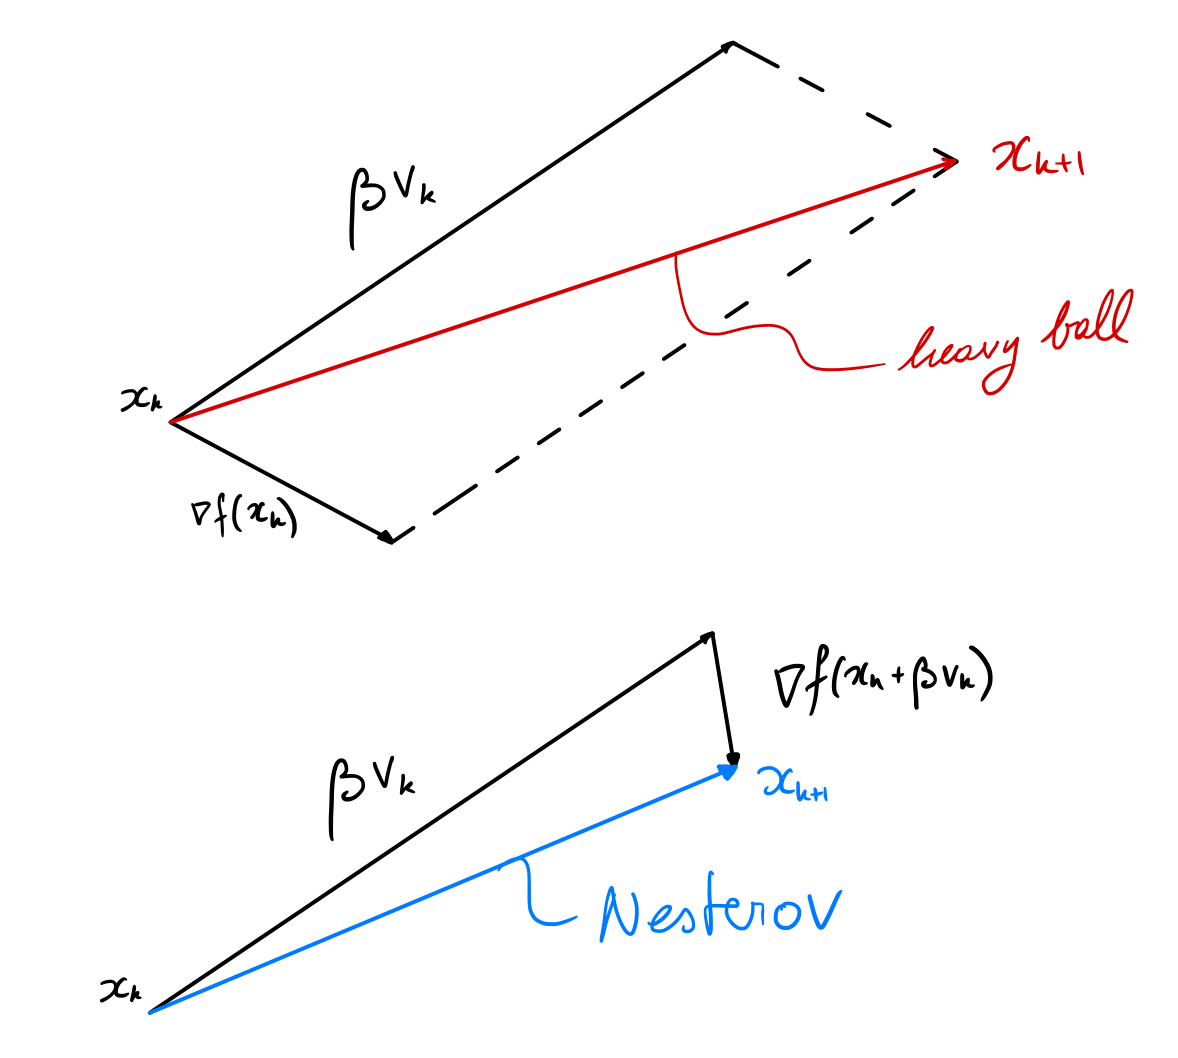 βv_k
x_{k+1}
heavy ball
x_k
∇f(x_k)
∇f(x_k + βv_k)
βv_k
x_{k+1}
Nesterov
x_k